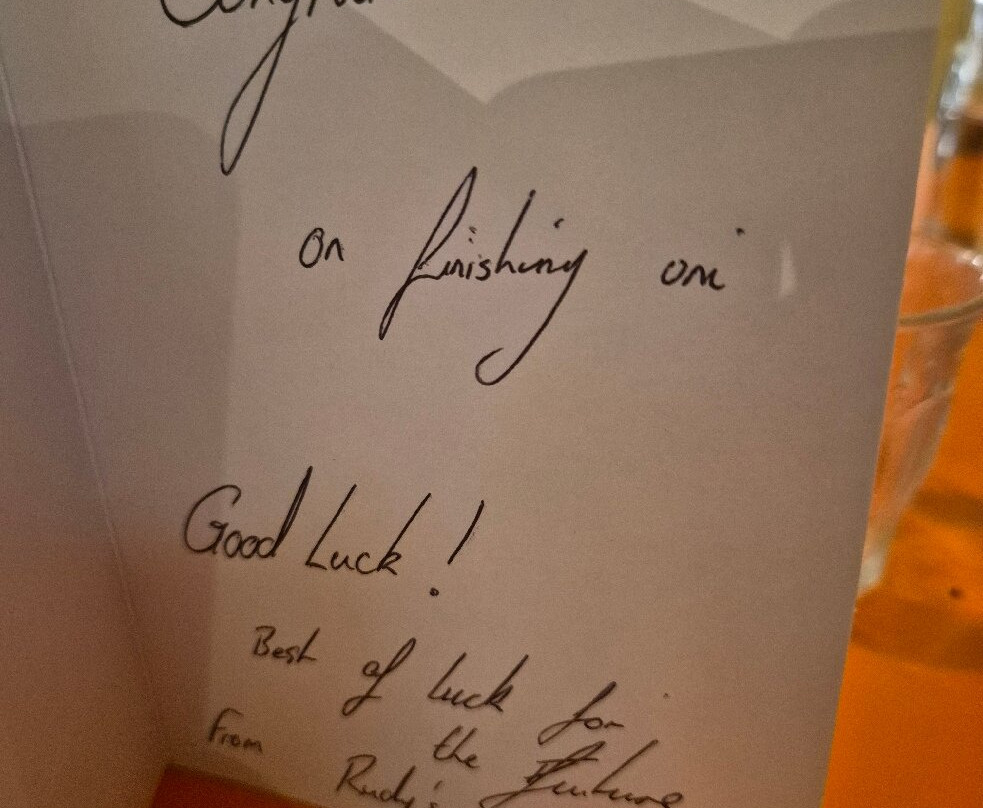 on finishing oni
Good Luck!
Best of luck for
the Future
From
Rudy's